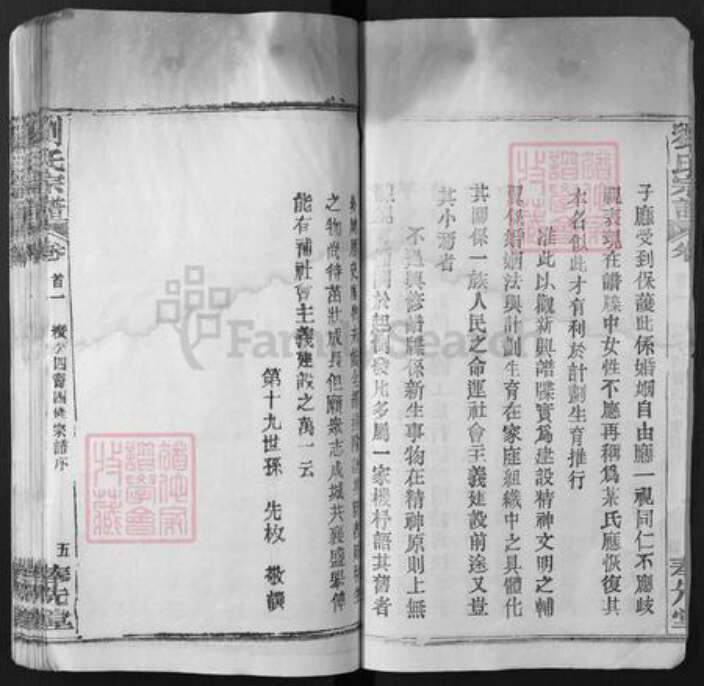 劉氏宗譜
子廳受到保護此係婚姻自由廳一視同仁不應歧
視表現在譜牒中女性不應再稱爲某氏應恢復其
本名似此才有利於計劃生育推行
准此以觀新興譜牒實爲建設精神文明之輔
翼係婚姻法與計劃生育在家庭組織中之具體化
其關係一族人民之命運社會主義建設前途又豈
其小焉者
不過興修譜牒係新生事物在精神原則上無
於起例發凡多屬一家機杼語其舊者
之物尚待茁壯成長但願衆志成城共襄盛舉傳
能有補社會主義建設之萬一云
第十九世孫 先枚 敬撰
劉氏宗譜
卷首一
修宗譜序
五
奉先堂
FamilySearch